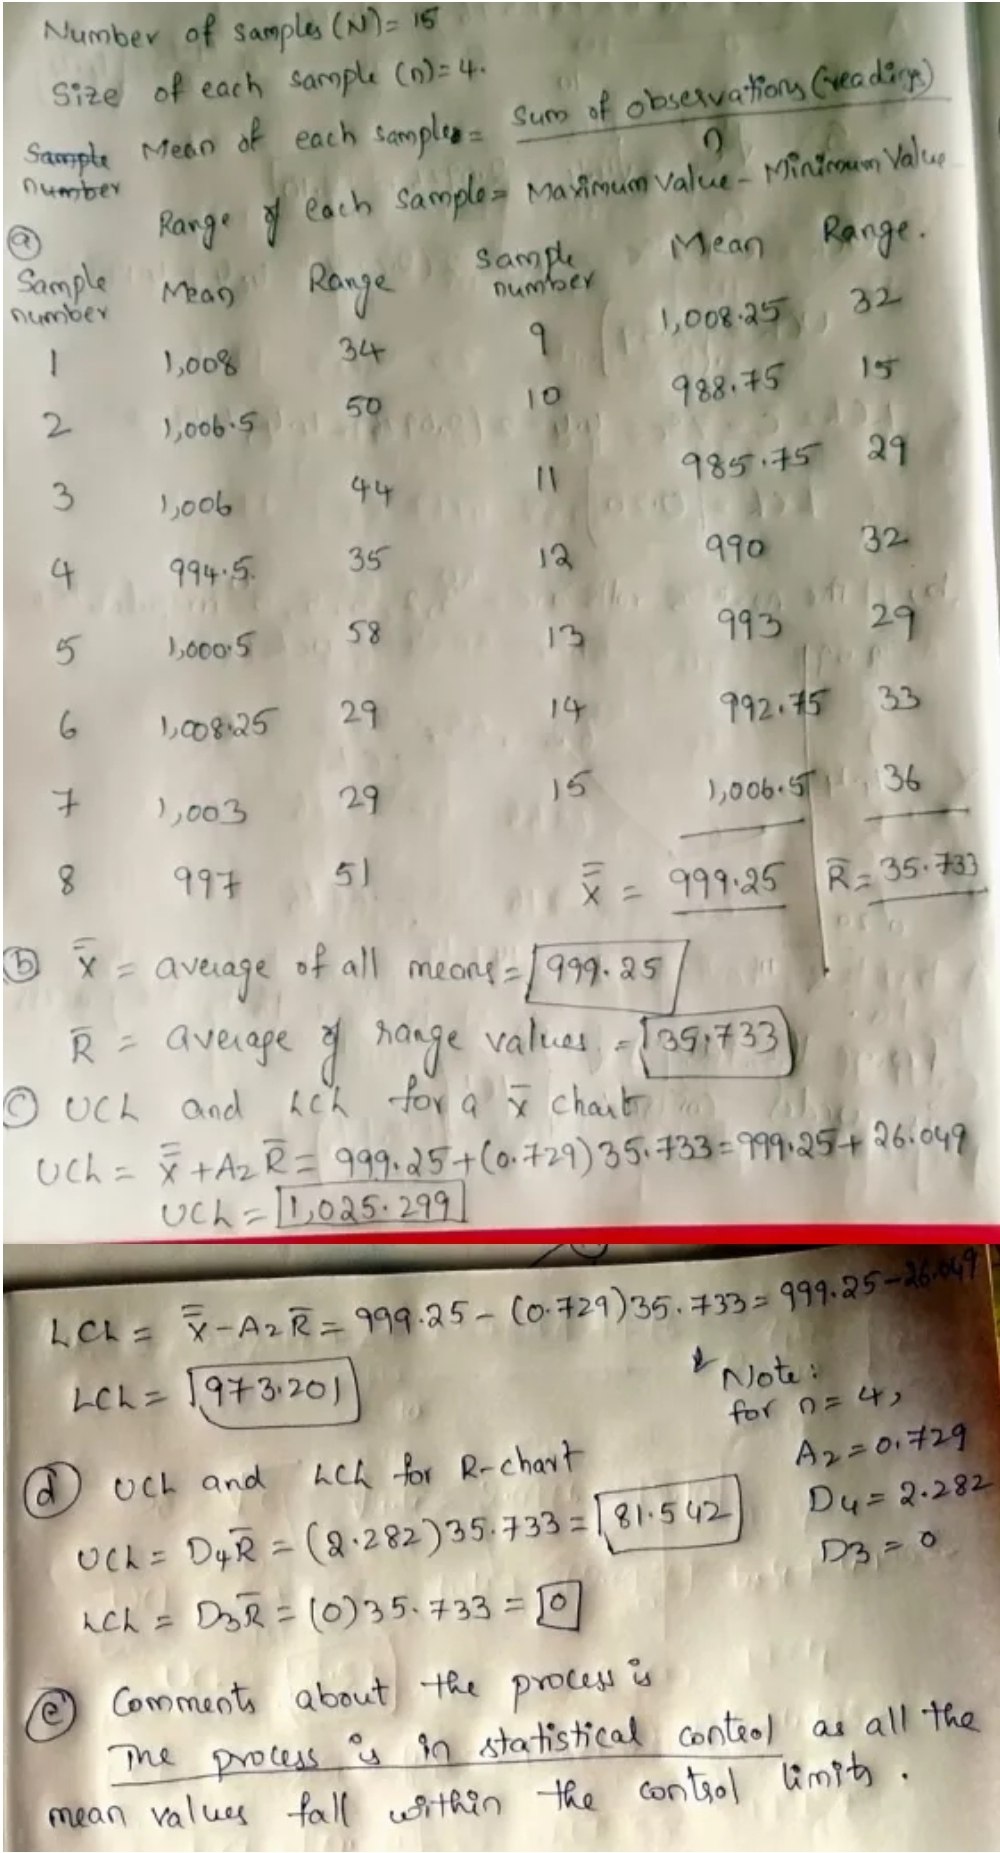 Number of samples (N) = 15
Size of each sample (n) = 4.
Mean of each samples = Sum of observations (readings) / n
Sample number
Range of each Sample = Maximum Value - Minimum Value
(a)
Sample number Mean Range Sample number Mean Range.
1 1,008 34 9 1,008.25 32
2 1,006.5 50 10 988.75 15
3 1,006 44 11 985.75 29
4 994.5. 35 12 990 32
5 1,000.5 58 13 993 29
6 1,008.25 29 14 992.75 33
7 1,003 29 15 1,006.5 36
8 997 51 x̿ = 999.25 R̄ = 35.733
(b) x̿ = average of all means = 999.25
R̄ = average of range values. = 35.733
(c) UCL and LCL for a x̄ chart
UCL = x̿ + A2 R̄ = 999.25 + (0.729) 35.733 = 999.25 + 26.049
UCL = 1,025.299
LCL = x̿ - A2 R̄ = 999.25 - (0.729) 35.733 = 999.25 - 26.049
LCL = 973.201
Note:
for n = 4,
A2 = 0.729
D4 = 2.282
D3 = 0
(d) UCL and LCL for R-chart
UCL = D4 R̄ = (2.282) 35.733 = 81.542
LCL = D3 R̄ = (0) 35.733 = 0
(e) Comments about the process is
The process is in statistical control as all the
mean values fall within the control limits.